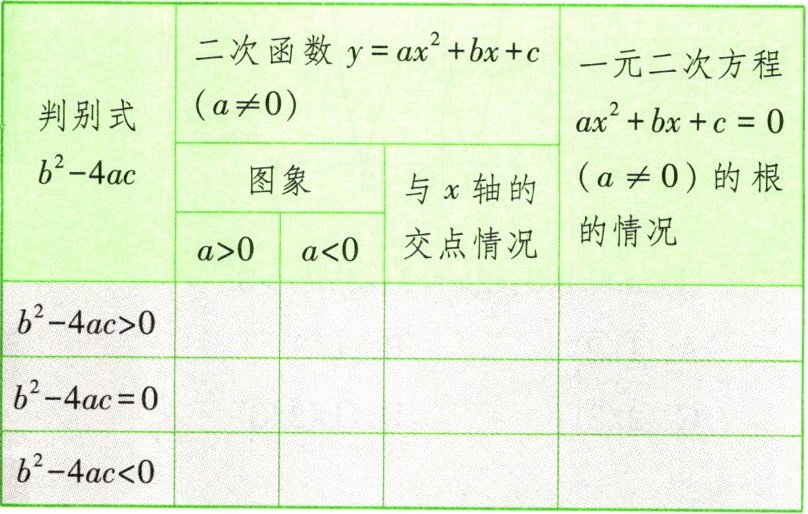 判别式
b²-4ac
二次函数 y=ax²+bx+c
(a≠0)
图象
a>0
a<0
与 x 轴的
交点情况
一元二次方程
ax²+bx+c=0
(a≠0)的根
的情况
b²-4ac>0
b²-4ac=0
b²-4ac<0